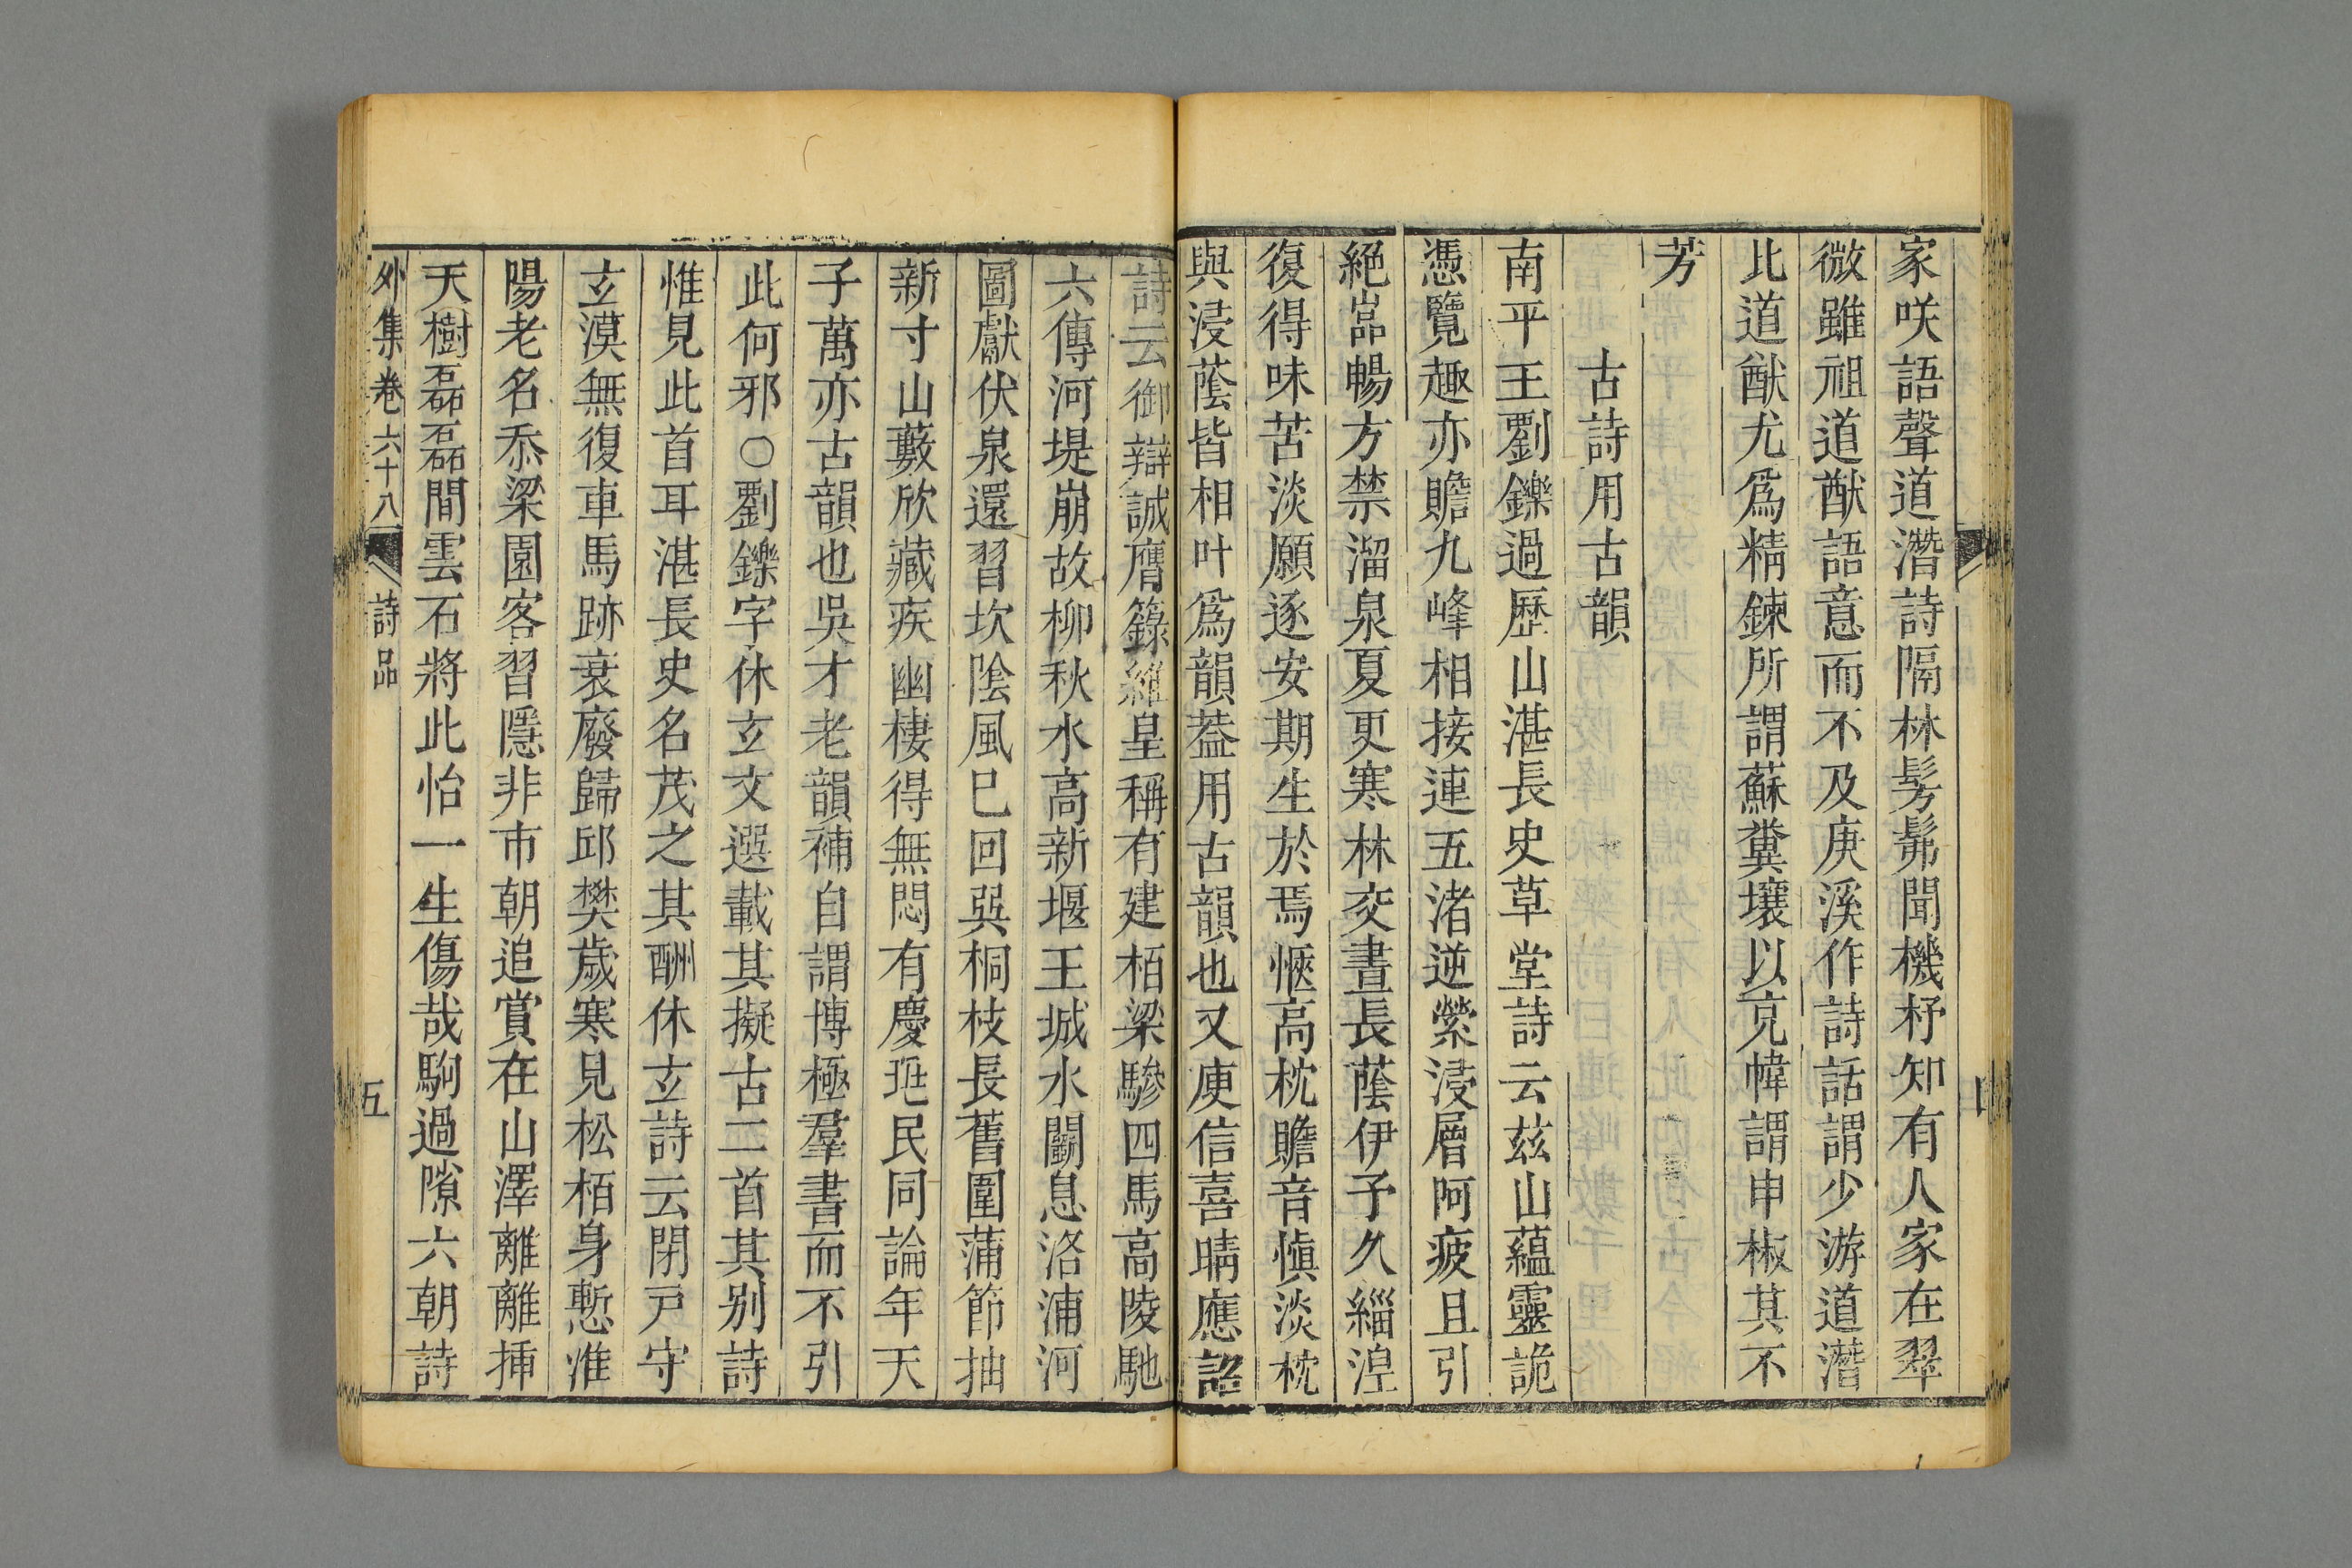 家咲語聲道潛詩隔林髣髴聞機杼知有人家在翠
微雖祖道猷語意而不及庚溪作詩話謂少游道潛
比道猷尤爲精鍊所謂蘇糞壤以充幃謂申椒其不
芳
古詩用古韻
南平王劉鑠過歷山湛長史草堂詩云兹山蘊靈詭
憑覽趣亦贍九峰相接連五渚逆縈浸層阿疲且引
絕巖暢方禁溜泉夏更寒林交晝長蔭伊予久緇湼
復得味苦淡願逐安期生於焉愜高枕贍音愼淡枕
與浸蔭皆相叶爲韻葢用古韻也又庾信喜晴應詔
詩云御辯誠膺籙維皇稱有建栢梁驂四馬高陵馳
六傳河堤崩故柳秋水高新堰王城水鬭息洛浦河
圖獻伏泉還習坎陰風巳回巽桐枝長舊圍蒲節抽
新寸山藪欣藏疾幽棲得無悶有慶㼈民同論年天
子萬亦古韻也吳才老韻補自謂博極羣書而不引
此何邪○劉鑠字休玄文選載其擬古二首其别詩
惟見此首耳湛長史名茂之其酬休玄詩云閉戸守
玄漠無復車馬跡衰廢歸邱樊歲寒見松栢身慙淮
陽老名忝梁園客習隱非市朝追賞在山澤離離揷
天樹磊磊間雲石將此怡一生傷哉駒過隙六朝詩
外集卷六十八 詩品 五